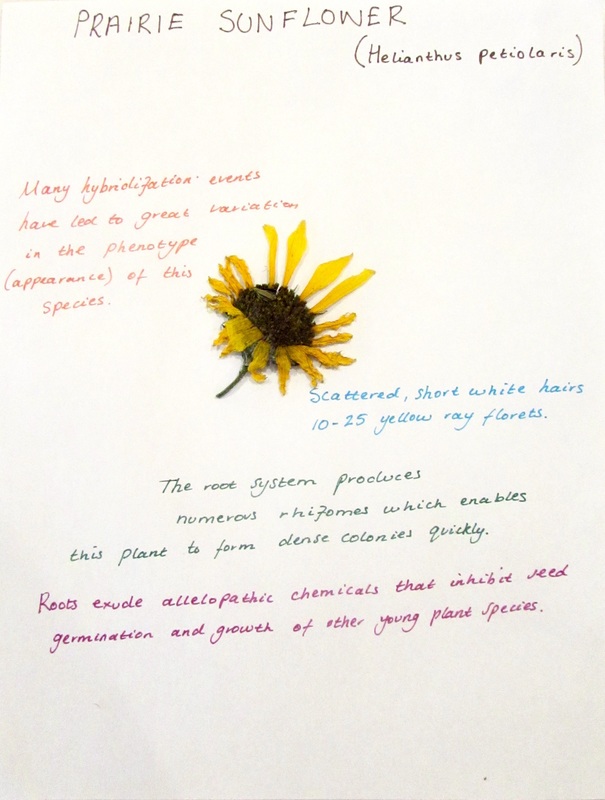 PRAIRIE SUNFLOWER
(Helianthus petiolaris)
Many hybridization events
have led to great variation
in the phenotype
(appearance) of this
species.
Scattered, short white hairs
10-25 yellow ray florets.
The root system produces
numerous rhizomes which enables
this plant to form dense colonies quickly.
Roots exude allelopathic chemicals that inhibit seed
germination and growth of other young plant species.